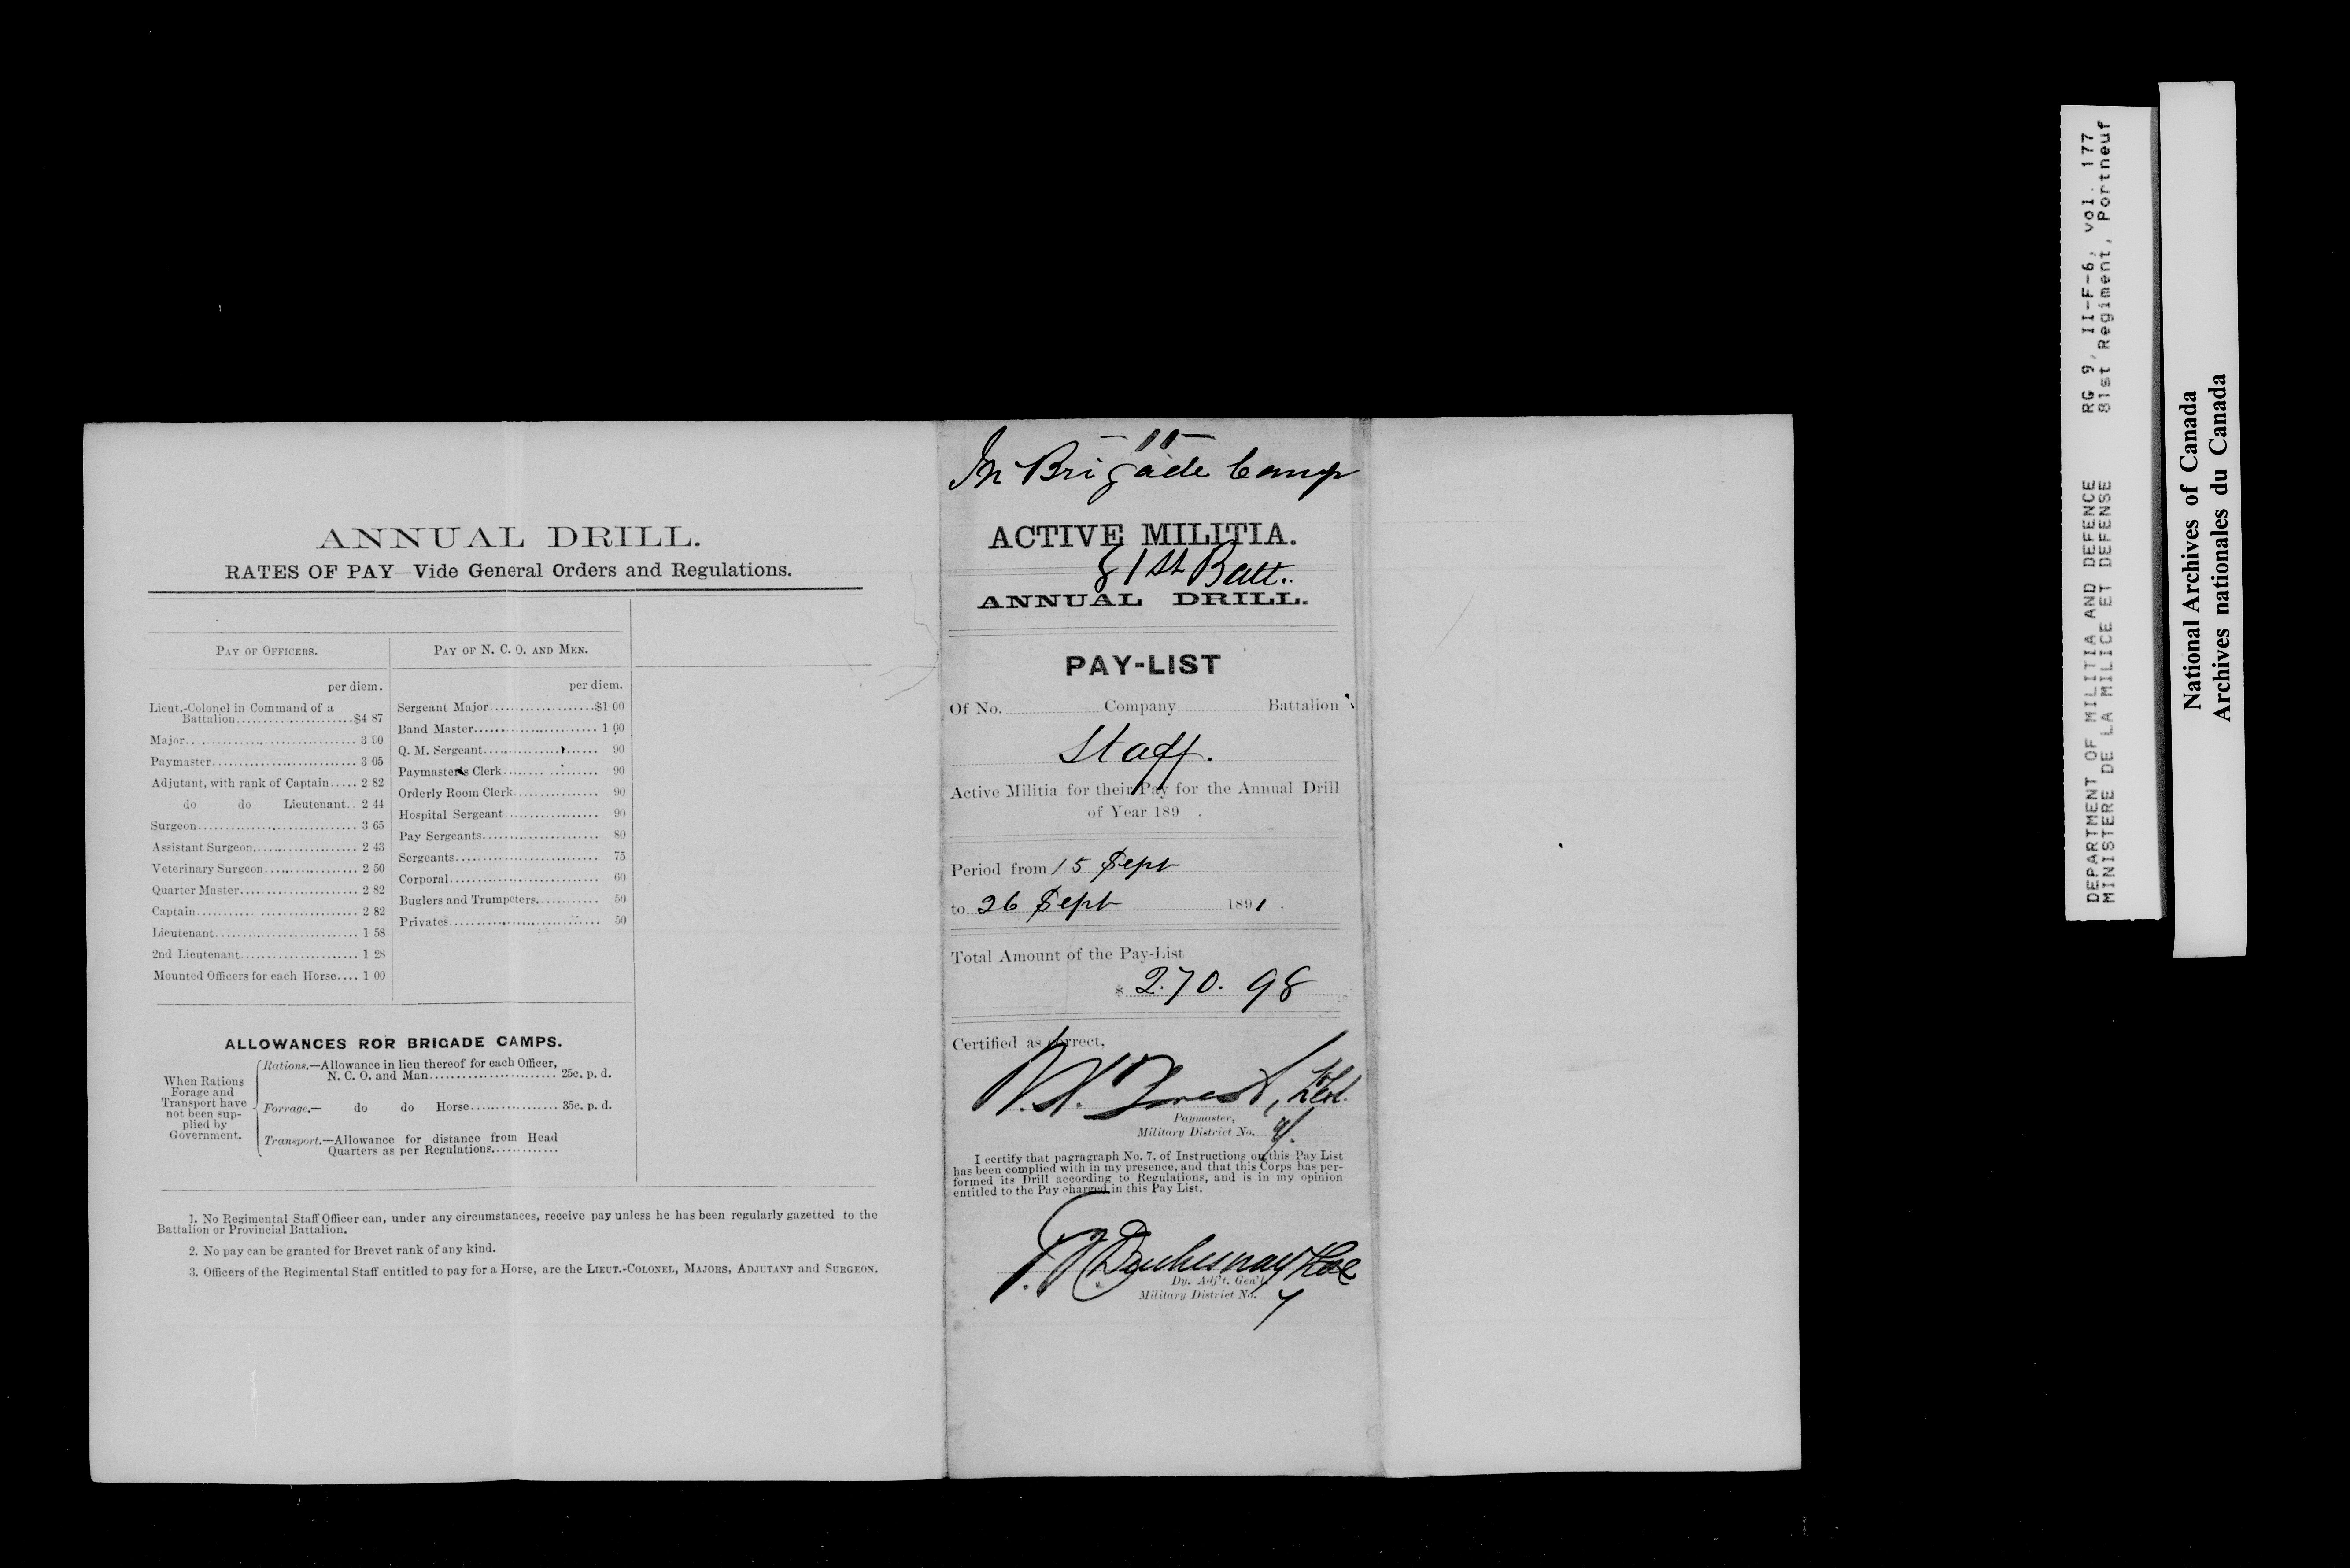 ANNUAL DRILL.
RATES OF PAY—Vide General Orders and Regulations.
PAY OF OFFICERS.
per diem.
Lieut.-Colonel in Command of a
Battalion....................$4 87
Major................................ 3 90
Paymaster........................... 3 05
Adjutant, with rank of Captain..... 2 82
do do Lieutenant.. 2 44
Surgeon.............................. 3 65
Assistant Surgeon................... 2 43
Veterinary Surgeon................. 2 50
Quarter Master...................... 2 82
Captain.............................. 2 82
Lieutenant........................... 1 58
2nd Lieutenant...................... 1 28
Mounted Officers for each Horse.... 1 00
PAY OF N. C. O. AND MEN.
per diem.
Sergeant Major...................$1 00
Band Master....................... 1 00
Q. M. Sergeant..................... 90
Paymaster's Clerk.................. 90
Orderly Room Clerk................ 90
Hospital Sergeant ................. 90
Pay Sergeants...................... 80
Sergeants........................... 75
Corporal............................ 60
Buglers and Trumpeters............ 50
Privates............................ 50
ALLOWANCES ROR BRIGADE CAMPS.
When Rations
Forage and
Transport have
not been sup-
plied by
Government.
Rations.—Allowance in lieu thereof for each Officer,
N. C. O. and Man........................ 25c. p. d.
Forrage.— do do Horse................ 35c. p. d.
Transport.—Allowance for distance from Head
Quarters as per Regulations............
1. No Regimental Staff Officer can, under any circumstances, receive pay unless he has been regularly gazetted to the
Battalion or Provincial Battalion.
2. No pay can be granted for Brevet rank of any kind.
3. Officers of the Regimental Staff entitled to pay for a Horse, are the LIEUT.-COLONEL, MAJORS, ADJUTANT and SURGEON.
— 11 —
In Brigade Camp
ACTIVE MILITIA.
81st Batt.
ANNUAL DRILL.
PAY-LIST
Of No. Company Battalion
Staff.
Active Militia for their Pay for the Annual Drill
of Year 189 .
Period from 15 Sept
to 26 Sept 1891.
Total Amount of the Pay-List
$ 270. 98
Certified as correct,
Paymaster,
Military District No. 7.
I certify that pagragraph No. 7, of Instructions on this Pay List
has been complied with in my presence, and that this Corps has per-
formed its Drill according to Regulations, and is in my opinion
entitled to the Pay charged in this Pay List.
Duchesnay
Dy. Adj't. Gen'l,
Military District No. 7
DEPARTMENT OF MILITIA AND DEFENCE RG 9, II-F-6, vol. 177
MINISTERE DE LA MILICE ET DEFENSE 81st Regiment, Portneuf
National Archives of Canada
Archives nationales du Canada